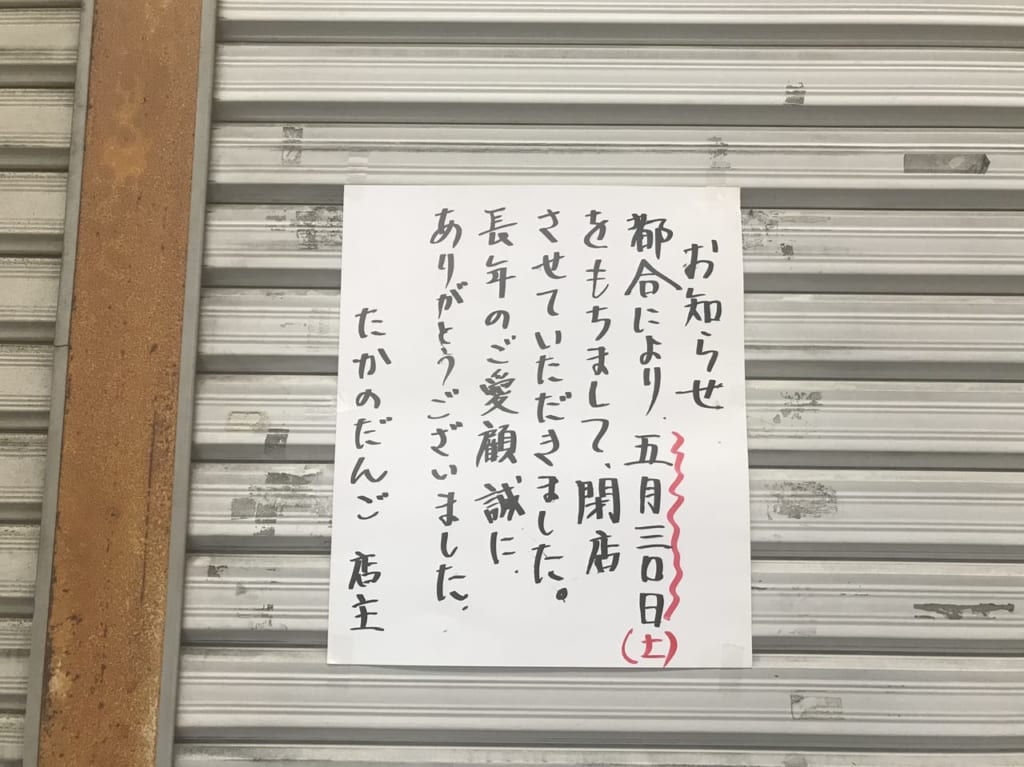 お知らせ
都合により、五月三〇日(土)
をもちまして、閉店
させていただきました。
長年のご愛顧誠に
ありがとうございました、
たかのだんご 店主